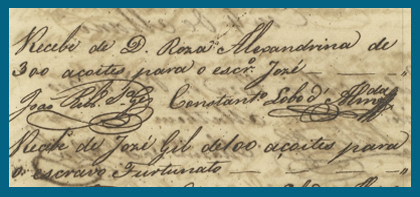 Recebi de D. Roza Alexandrina de
300 açoites para o escrº. Jozé
João Constantº. Lobo d'
Recebi de Jozé Gil de 100 açoites para
o escravo Furtunato